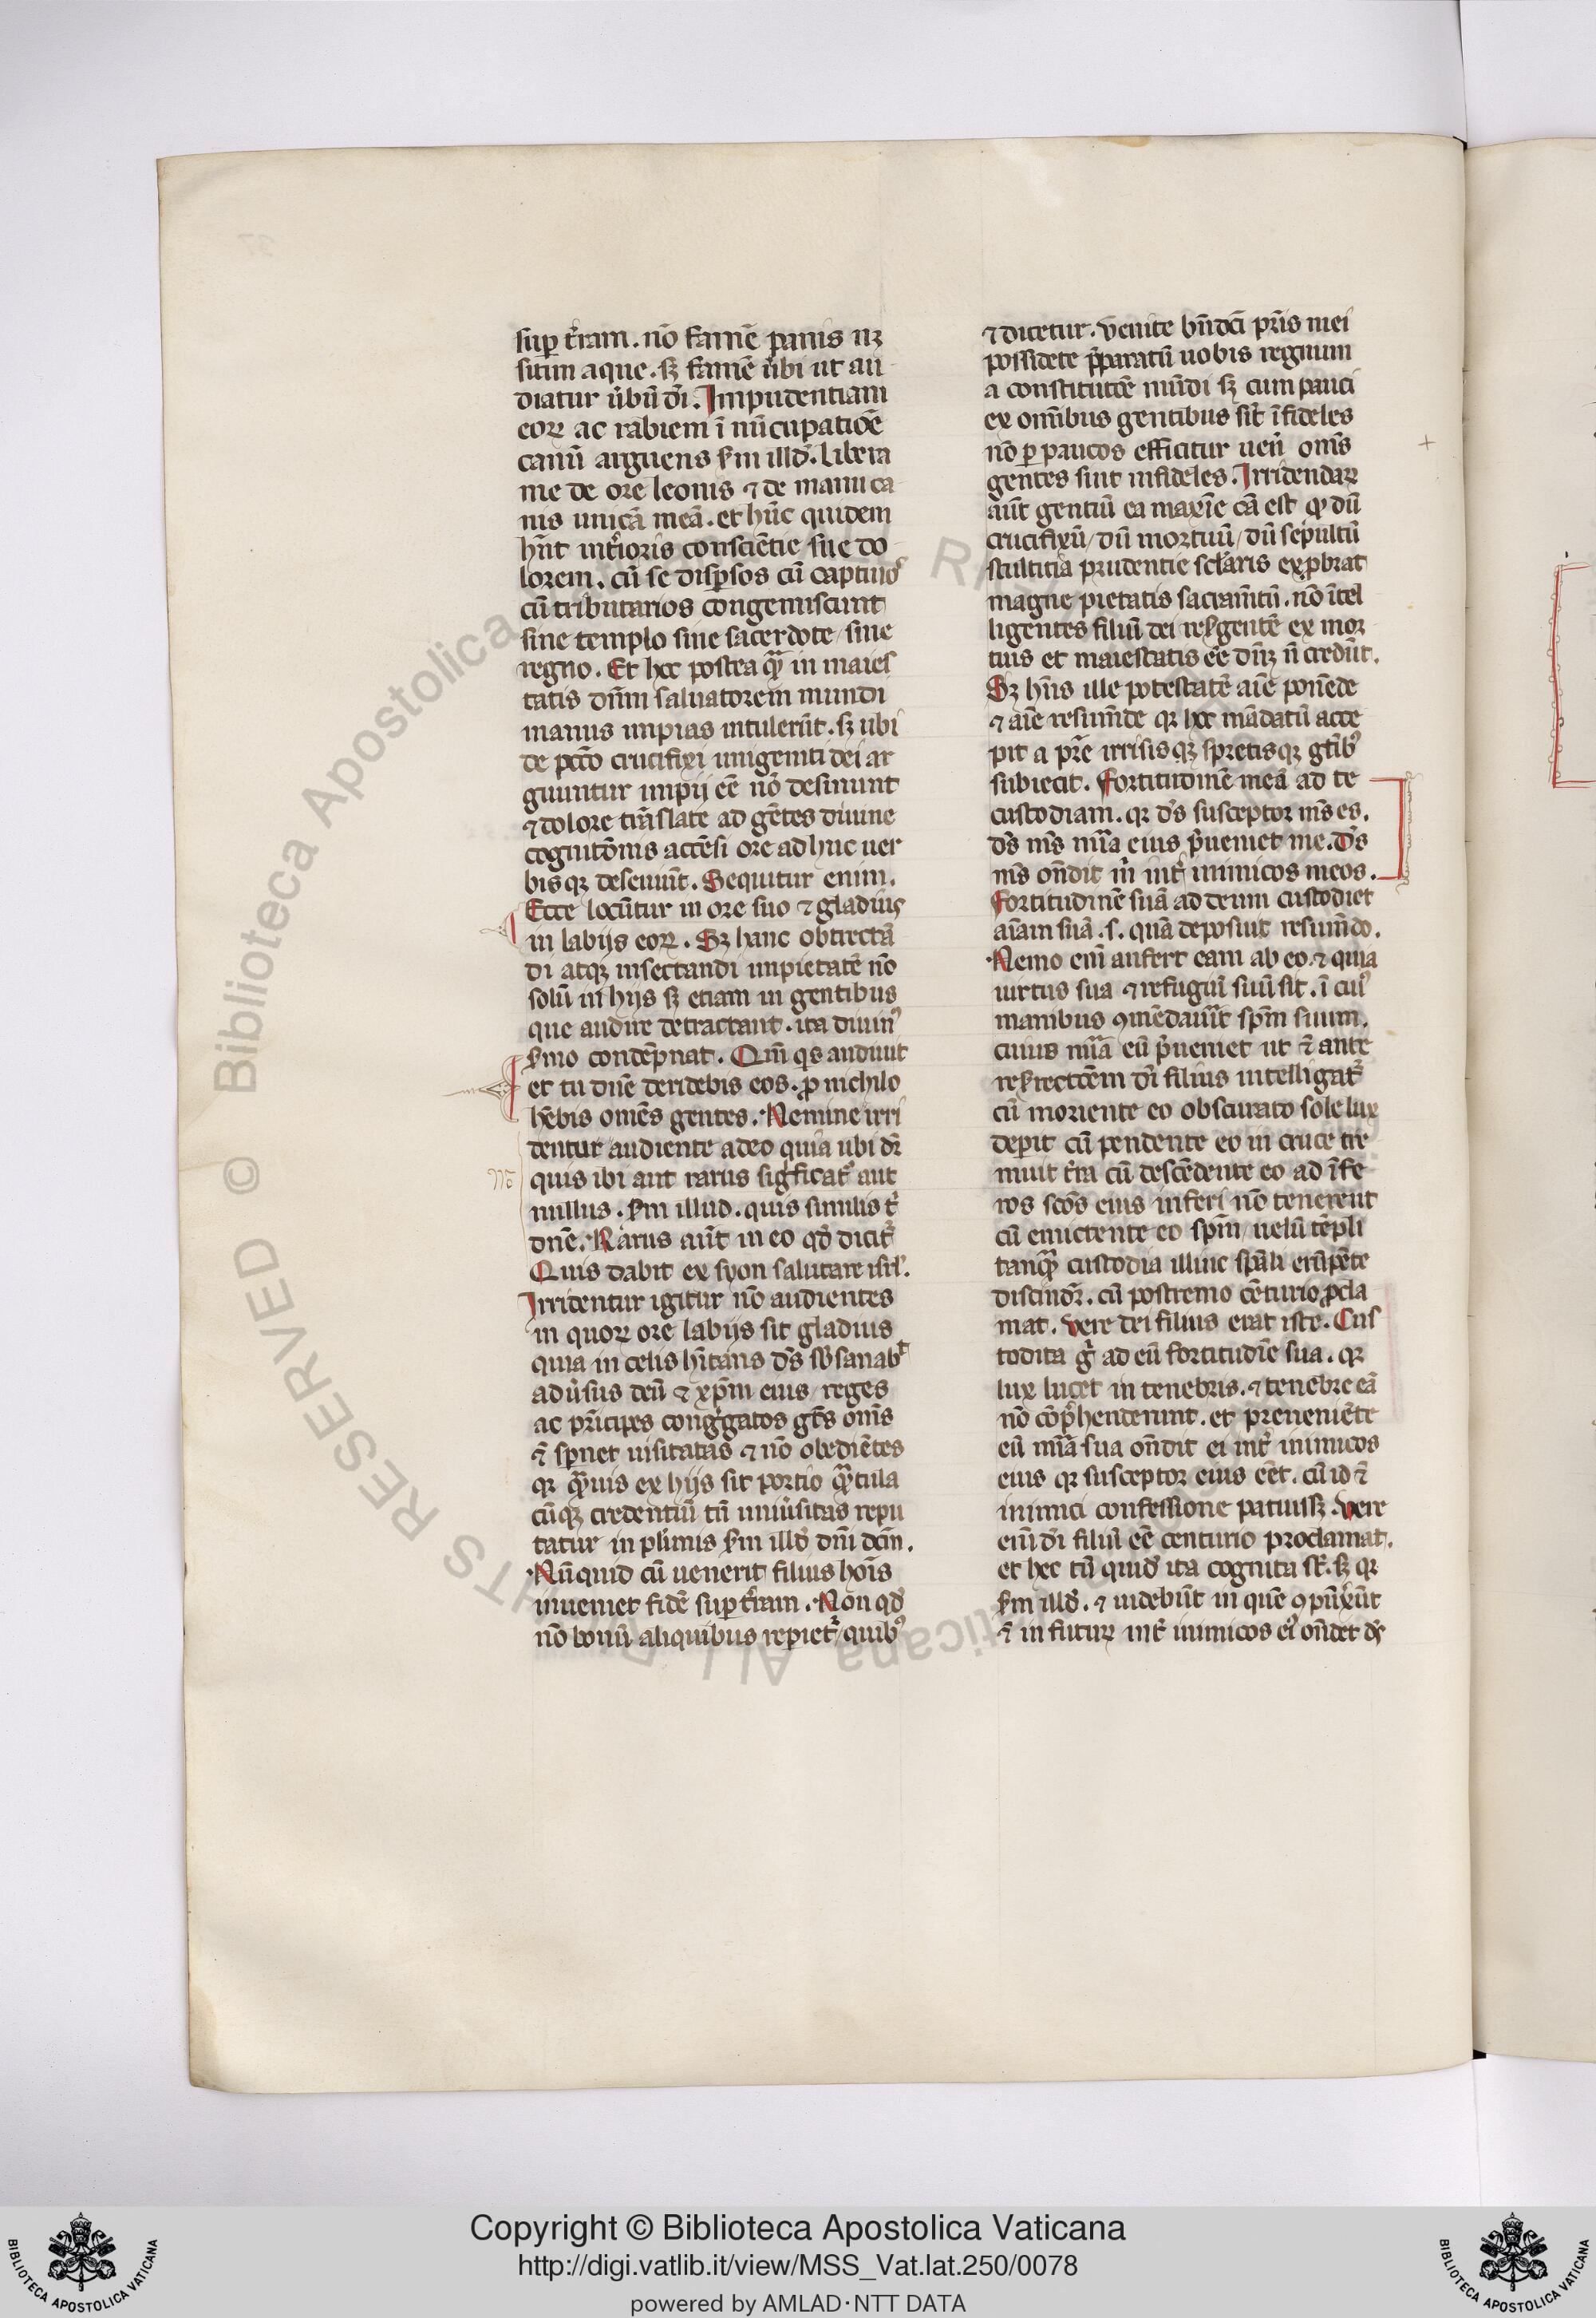 sup t̃ram. nõ famẽ panis neqꝫ
sitim aque. sꝫ famẽ ũbi ut au
diatur ũbũ dĩ. Impudentiam
eoꝝ ac rabiem ĩ nũcupatiõe
canũ arguens sm̃ illd̃. Libera
me de ore leonis ⁊ de manu ca
nis unicã meã. et hũc quidem
hñt int̃ioris consciẽtie sue do
lorem. cũ se disp̃sos cũ captiuoꝰ
cũ tributarios congemiscunt
sine templo sine sacerdote / sine
regno. Et hec postea qᷓ in maies
tatis dñm saluatorem mundi
manus impias intulerũt. sꝫ ubi
de pctõ crucifixi unigeniti dei ar
guuntur impij eẽ nõ desinunt
⁊ dolore trãslate ad gẽtes diuine
cognitõnis accẽsi ore adhuc uer
bisqꝫ deseuiũt. Sequitur enim.
Ecce locũtur in ore suo ⁊ gladius
in labijs eoꝝ. Sꝫ hanc obtrectã
di atqꝫ insectandi impietatẽ nõ
solũ in hijs sꝫ etiam in gentibus
que audire detractant. ita diuinꝰ
s̃mo condẽpnat. Qm̃ qs audiuit
et tu dñe deridebis eos. ꝓ nichilo
hẽbis omẽs gentes. Nemine irri
dentur audiente adeo quia ubi dr̃
quis ibi aut rarus sigficat᷑ aut
nullus. sm̃ illud. quis similis t̃
dñe. Rarus aũt in eo qd̃ dicit᷑
Quis dabit ex syon salutare isrl̃.
Irridentur igitur nõ audientes
in quoꝝ ore labijs sit gladius
quia in celis hĩtans dẽs sb̃sanabᵗ
adũsus deũ ⁊ xp̃m eius / reges
ac pr̃icipes congr̃gatos gt̃s om̃s
⁊̃ sp̃net uisitatas ⁊ nõ obediẽtes
qꝛ qᷓuis ex hijs sit portio qᷓtula
cũqꝫ credentiũ tñ uniũsitas repu
tatur in plũmis sm̃ illd̃ dñi dcm̃.
Nũquid cũ uenerit filius hoĩs
inueniet fidẽ sup t̃ram. Non qd̃
nõ bonũ aliquibus repiet᷑ / quibꝰ
⁊ dicetur. Venite bñdcĩ pr̃is mei
possidete p̃paratũ uobis regnum
a constitutõe mũdi sꝫ cum pauci
ex omĩbus gentibus sĩt ĩfideles
nõ ꝑ paucos efficitur uerũ om̃s
gentes sint infideles. Irridendaꝝ
aũt gentiũ ea maxĩe cã est qꝫ dũ
crucifixũ / dũ mortuũ / dũ sepultũ
stultitia prudentie sclãris exp̱brat
magne pietatis sacram̃tũ. nõ ĩtel
ligentes filiũ dei resˀgentẽ ex mor
tuis et maiestatis eẽ dñꝫ ñ credũt.
Sꝫ hñs ille potestatẽ aĩe ponẽde
⁊ aĩe resumẽde qꝛ hec mãdatũ acce
pit a pr̃e irrisisqꝫ spretisqꝫ gt̃ibꝰ
subiecit. Fortitudinẽ meã ad te
custodiam. qꝛ dẽs susceptor mẽs es.
dẽs mẽs mĩa eius p̃ueniet me. Dẽs
mẽs oñdit m̃ int̃ inimicos meos.
Fortitudinẽ suã ad deum custodiet
aĩam suã. s. quã deposuit resumẽdo.
Nemo eñi aufert eam ab eo. ⁊ quia
uirtus sua ⁊ refugiũ suũ sit. ĩ cuiꝰ
manibus ꝯmẽdauit spm̃ suum.
cuius mĩa eũ p̃ueniet ut ⁊̃ ante
resˀrectõem dĩ filius intelligat᷑
cũ moriente eo obscurato sole lux
deperit cũ pendente eo in cruce tre
muit t̃ra cũ descẽdente eo ad ĩfe
ros scõs eius inferi nõ tenerent
cũ emictente eo spm̃ / uelũ tẽpli
tanqᷓ custodia illinc spãli erũpẽte
discindit᷑. cũ postremo cẽturio ꝓcla
mat. Vere dei filius erat iste. Cus
todita g̃ ad eũ fortitudĩe sua. qꝛ
lux lucet in tenebris. ⁊ tenebre eã
nõ cõp̃henderunt. et preueniẽte
eũ mĩa sua oñdit ei int̃ inimicos
eius qꝛ susceptor eius eẽt. cũ id ⁊̃
inimici confessione patuissꝫ. Vere
eñi dĩ filiũ eẽ centurio proclamat.
et hec tñ quid̃ ita cognita st̃. sꝫ qꝛ
sm̃ illd̃. ⁊ uidebũt in quẽ ꝯpũxũt
⁊̃ in futuꝝ int̃ inimicos eiꝰ oñdet dẽs
Copyright © Biblioteca Apostolica Vaticana
http://digi.vatlib.it/view/MSS_Vat.lat.250/0078
powered by AMLAD·NTT DATA